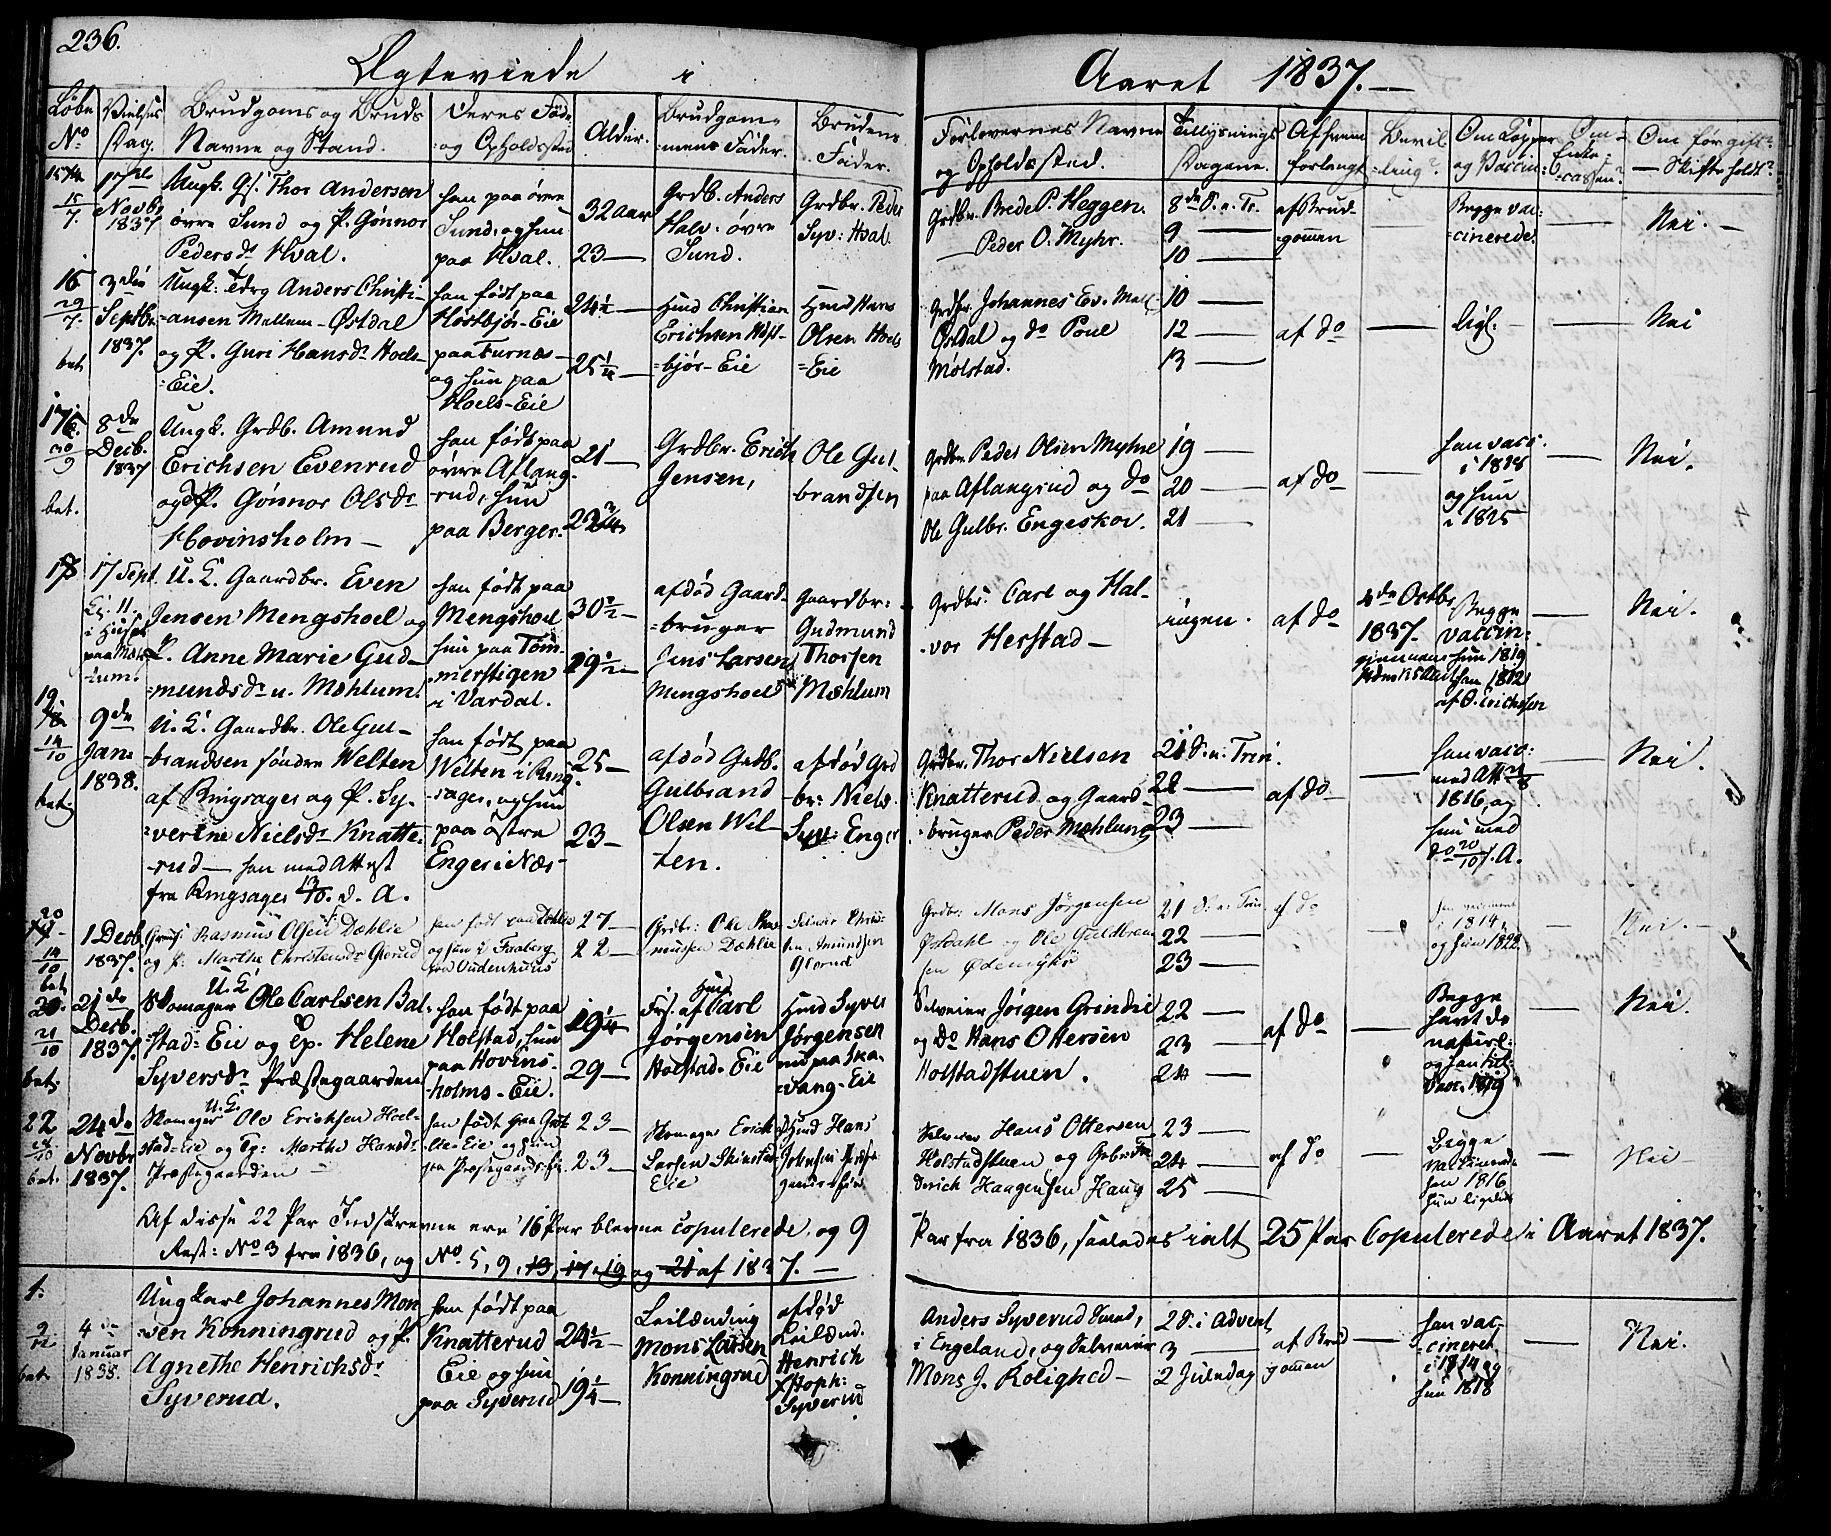 236.
Ægteviede i
Aaret 1837.
Løbe No
Vielses Dag.
Brudgoms og Bruds Navne og Stand.
Deres Føde- og Opholdssted
Alder.
Brudgommens Fader.
Brudens Fader.
Forlovernes Navne og Opholdssted.
Tillysnings Dagene.
Af hvem forlangt
Bevilling?
Om Kopper og Vaccin:
Om Enke-cassen?
Om før gift? Skifte holdt?
15/7.
17de Novbr 1837
Ungk. Gf. Thor Andersen
øvre Sund og P. Gønnor
Pedersdr Hval.
han paa øvre
Sund, og hun
paa Hval.
32 Aar
23
Grdb. Anders
Halv. øvre
Sund.
Grdbr. Peder
Syv: Hval.
Grdbr. Brede P. Heggen.
Peder O. Myhr.
8de S. e. Tr.
9
10
af Brud-
gommen
Begge vac:
cinerede.
Nei.
16
29/7.
bet
3die
Septbr
1837.
Ungk: Anders Christi-
ansen Mellem-Østdal
og P. Guri Hansdr Hoels-
Eie.
han født paa
Høstbjør-Eie
paa Furnæs
og hun paa
Hoels-Eie
24½
25¼
Husmd Christian
Erichsen Høst-
bjør-Eie
Husmd Hans
Olsen Hoels
Eie
Grdbr Johannes Ev. Mell.
Østdal og do Poul
Mølstad.
10
12
13
af do
ligl:
Nei
17
30/9
bet.
8de
Decb.
1837
Ungk. Grdb. Amund
Erichsen Evenrud
og P. Gønnor Olsdr
Hovinsholm
han født paa
øvre Aflang-
rud, hun
paa Berger
21
23¾
Grdbr. Erich
Jensen,
Ole Gul-
brandsen
Grdbr Peder Olsen Myhre
paa Aflangrud og do
Ole Gulbr. Engeskov.
19
20
21
af do
han vacc.
i 1818
og hun
i 1825
Nei.
18
17 Sept
i Huset
paa Mæh-
lum.
U. K. Gaardbr. Even
Jensen Mengshoel og
P. Anne Marie Gud-
mundsdr u. Mæhlum.
han født paa
Mengshoel
hun paa Tøm-
merstigen
i Vardal.
30½
29½
afdød Gaard-
bruger
Jens Larsen
Mengshoel
Gaardbr:
Gudmund
Thorsen
Mæhlum
Grdbr: Carl og Hal-
vor Herstad
ingen.
af do
Octbr
1837.
Begge
vaccin:
hun 1819
han 1812
Nei.
19
14/10
bet.
9de
Jan.
1838.
U. K. Gaardbr. Ole Gul-
brandsen søndre Welten
af Ringsager og P. Sy-
verine Nielsdr Knatte-
rud han med Attest
fra Ringsager 13/10. d. A.
han født paa
Welten i Ring-
sager, og hun
paa østre
Enger i Næs
25
23
afdød Grdb.
Gulbrand
Olsen Wel-
ten.
afdød Grd
br: Niels
Syv: Enger
Grdbr. Thor Nielsen
Knatterud og Gaard-
bruger Peder Mæhlum
21 S. e. Trin.
22
23
af do
han vacc:
med Att
1816, og
hun med
do 20/10. A.
Nei.
20
14/10
bet
1 Decb
1837.
Rasmus Olsen Dæhlie
og P. Marthe Christensdr Glorud
han født paa Dæhlie
og hun i Faaberg
27
22
Grdbr: Ole Ras-
mussen Dæhlie
Glorud
Grdbr: Mons Jørgensen
Østdahl og Ole Guldbrand-
sen Ødemyhr
21 S. e. Trin
22
23
af do
i 1814,
og hun 1822
Nei.
21/10
bet.
21de
Decb.
1837.
U. K.
Skomager Ole Carlsen Bal-
stad-Eie og Ep. Helene
Syversdr Præstegaarden
han født paa
Holstad, hun
paa Hovins-
holms-Eie.
29¼
29
Carl
Jørgensen
Holstad-Eie
Husmd Syver
Jørgensen
nu paa Ska-
vang-Eie
Selveier Jørgen Grindei
og Do Hans Ottersen
Holstadstuen.
22
23
24
af do
Begge
havt de
naturl:
og han til.
vacc. 1819
Nei.
22
28/10
bet.
24de
Novbr
1837.
U. K.
Skomager Ole Erichsen Hoel-
stad-Eie og Marthe Hansdr
Præstegaarden
han født paa
Eie og hun
paa Præstegaards Eie
23
23
Skomager Erich
Larsen
Eie
Husmd Hans
Johnsen Præste-
gaards Eie
Selveier Hans Ottersen
Holstadstuen og
Diderich Haagensen Haug
23
24
25
af do
Begge
vaccinerede
han 1816
hun ligeledes
Nei
Af disse 22 Par Indskrevne ere 16 Par blevne copulerede, og 9 Par fra 1836, saaledes ialt 25 Par Copulerede i Aaret 1837.
Rest: No 3 fra 1836, og No 5, 9, 13, 17, 19 og 21 af 1837.
1.
9/12.
bet.
4de
Januar
1838.
Ungkarl Johannes Mon-
sen Konningrud og P.
Agnethe Henrichsdr
Syverud.
han født paa
Knatterud
Eie og hun
paa Syverud
24½
19¼
Leilænding
Mons Larsen
Konningrud
afdød
Leilænd.
Henrich
Christoph:
Syverud
Anders Syverud
i Engeland, og Selveier
Mons J. Rolighed
2 S. i Advent
3
2 Juledag
af Brud
gommen
han vac-
cineret
i 1814 og
hun 1818
Nei.